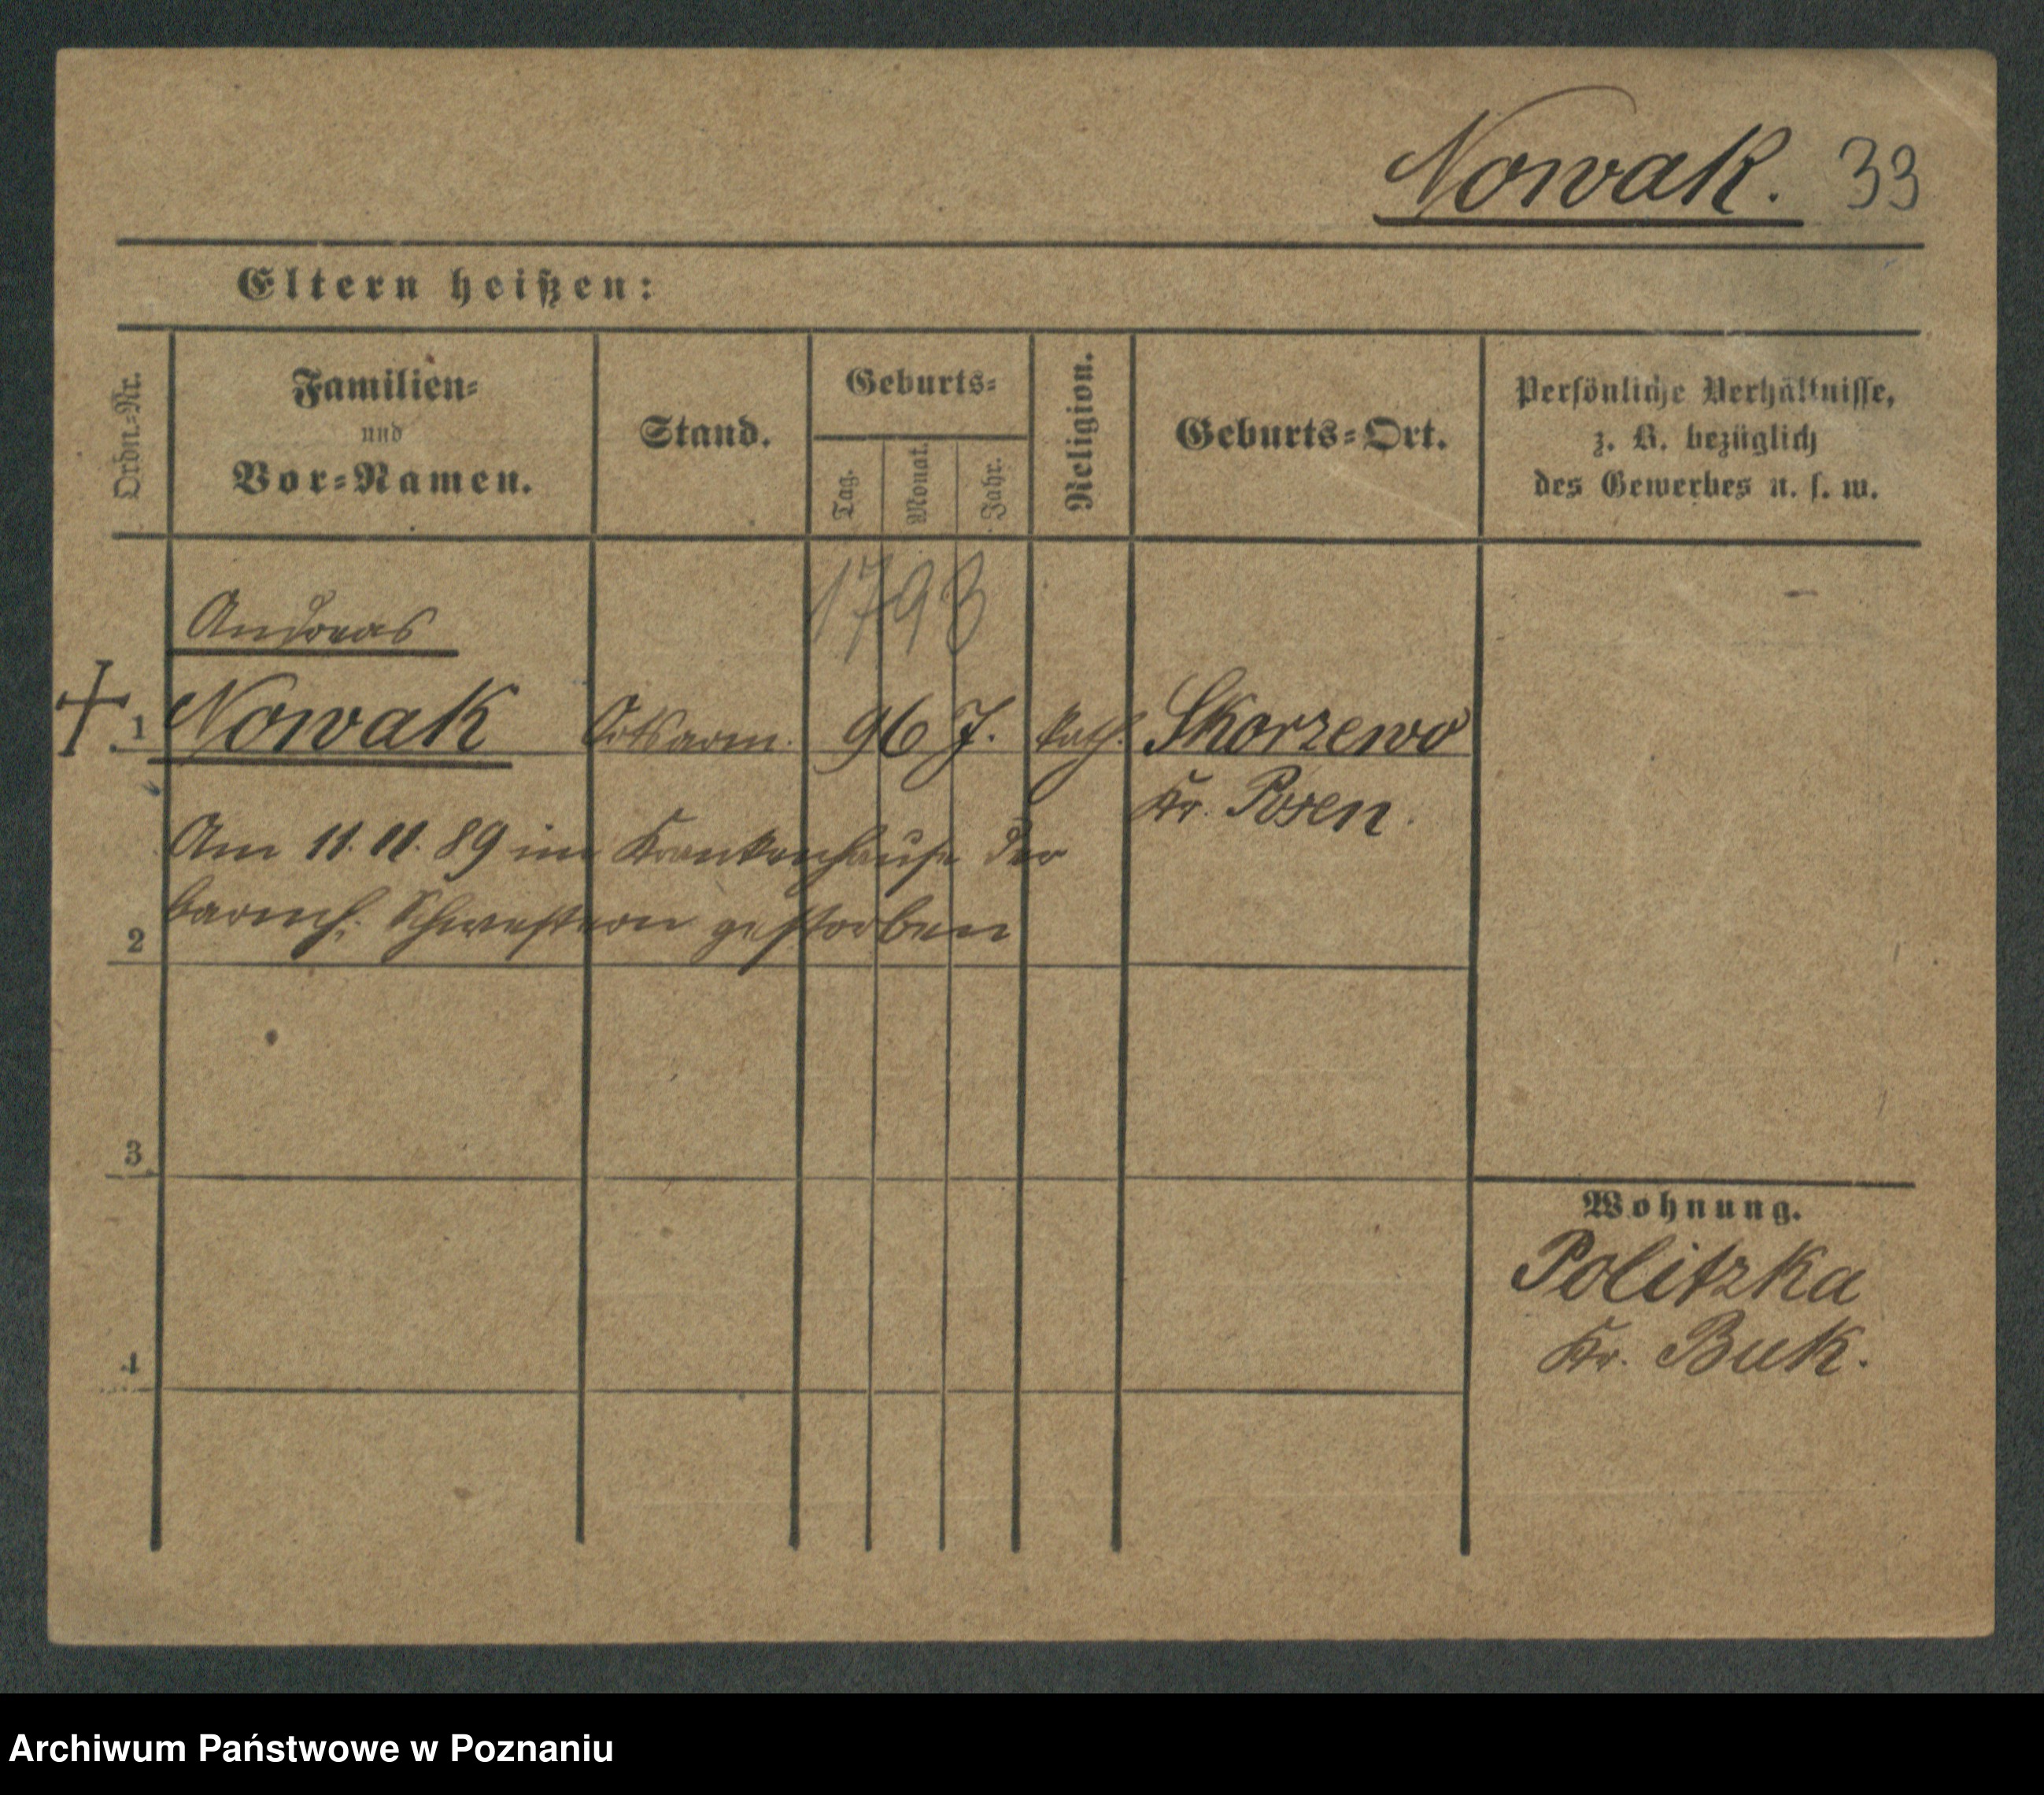 Nowak. 33
Eltern heißen:
Ordn.-Nr.
Familien-
und
Vor-Namen.
Stand.
Geburts-
Tag.
Monat.
Jahr.
Religion.
Geburts-Ort.
Persönliche Verhältnisse,
z. B. bezüglich
des Gewerbes u. s. w.
1793
Andreas
1 Nowak Ortsarm. 96 J. kath. Skorzewo
Kr. Posen.
Am 11. 11. 89 im Krankenhause der
barmh. Schwestern gestorben
2
3
Wohnung.
Politzka
Kr. Buk.
4
Archiwum Państwowe w Poznaniu